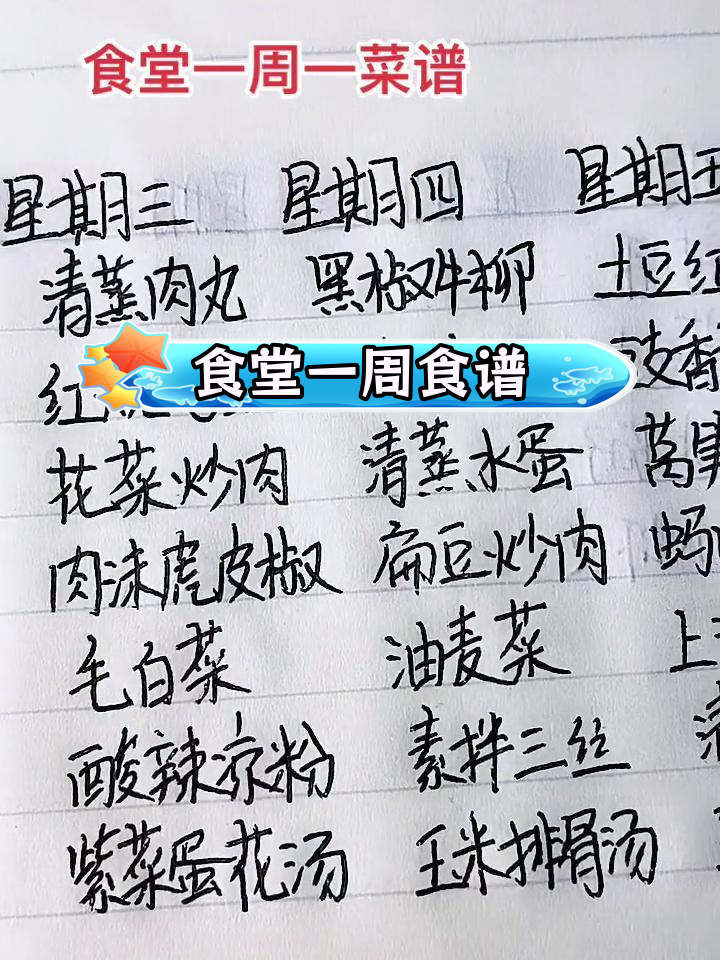 食堂一周一菜谱
星期三 星期四 星期五
清蒸肉丸 黑椒牛柳 土豆红
食堂一周食谱
红 豉香
花菜炒肉 清蒸水蛋 莴
肉沫虎皮椒 扁豆炒肉 蚂
毛白菜 油麦菜 上
酸辣凉粉 素拌三丝
紫菜蛋花汤 玉米排骨汤